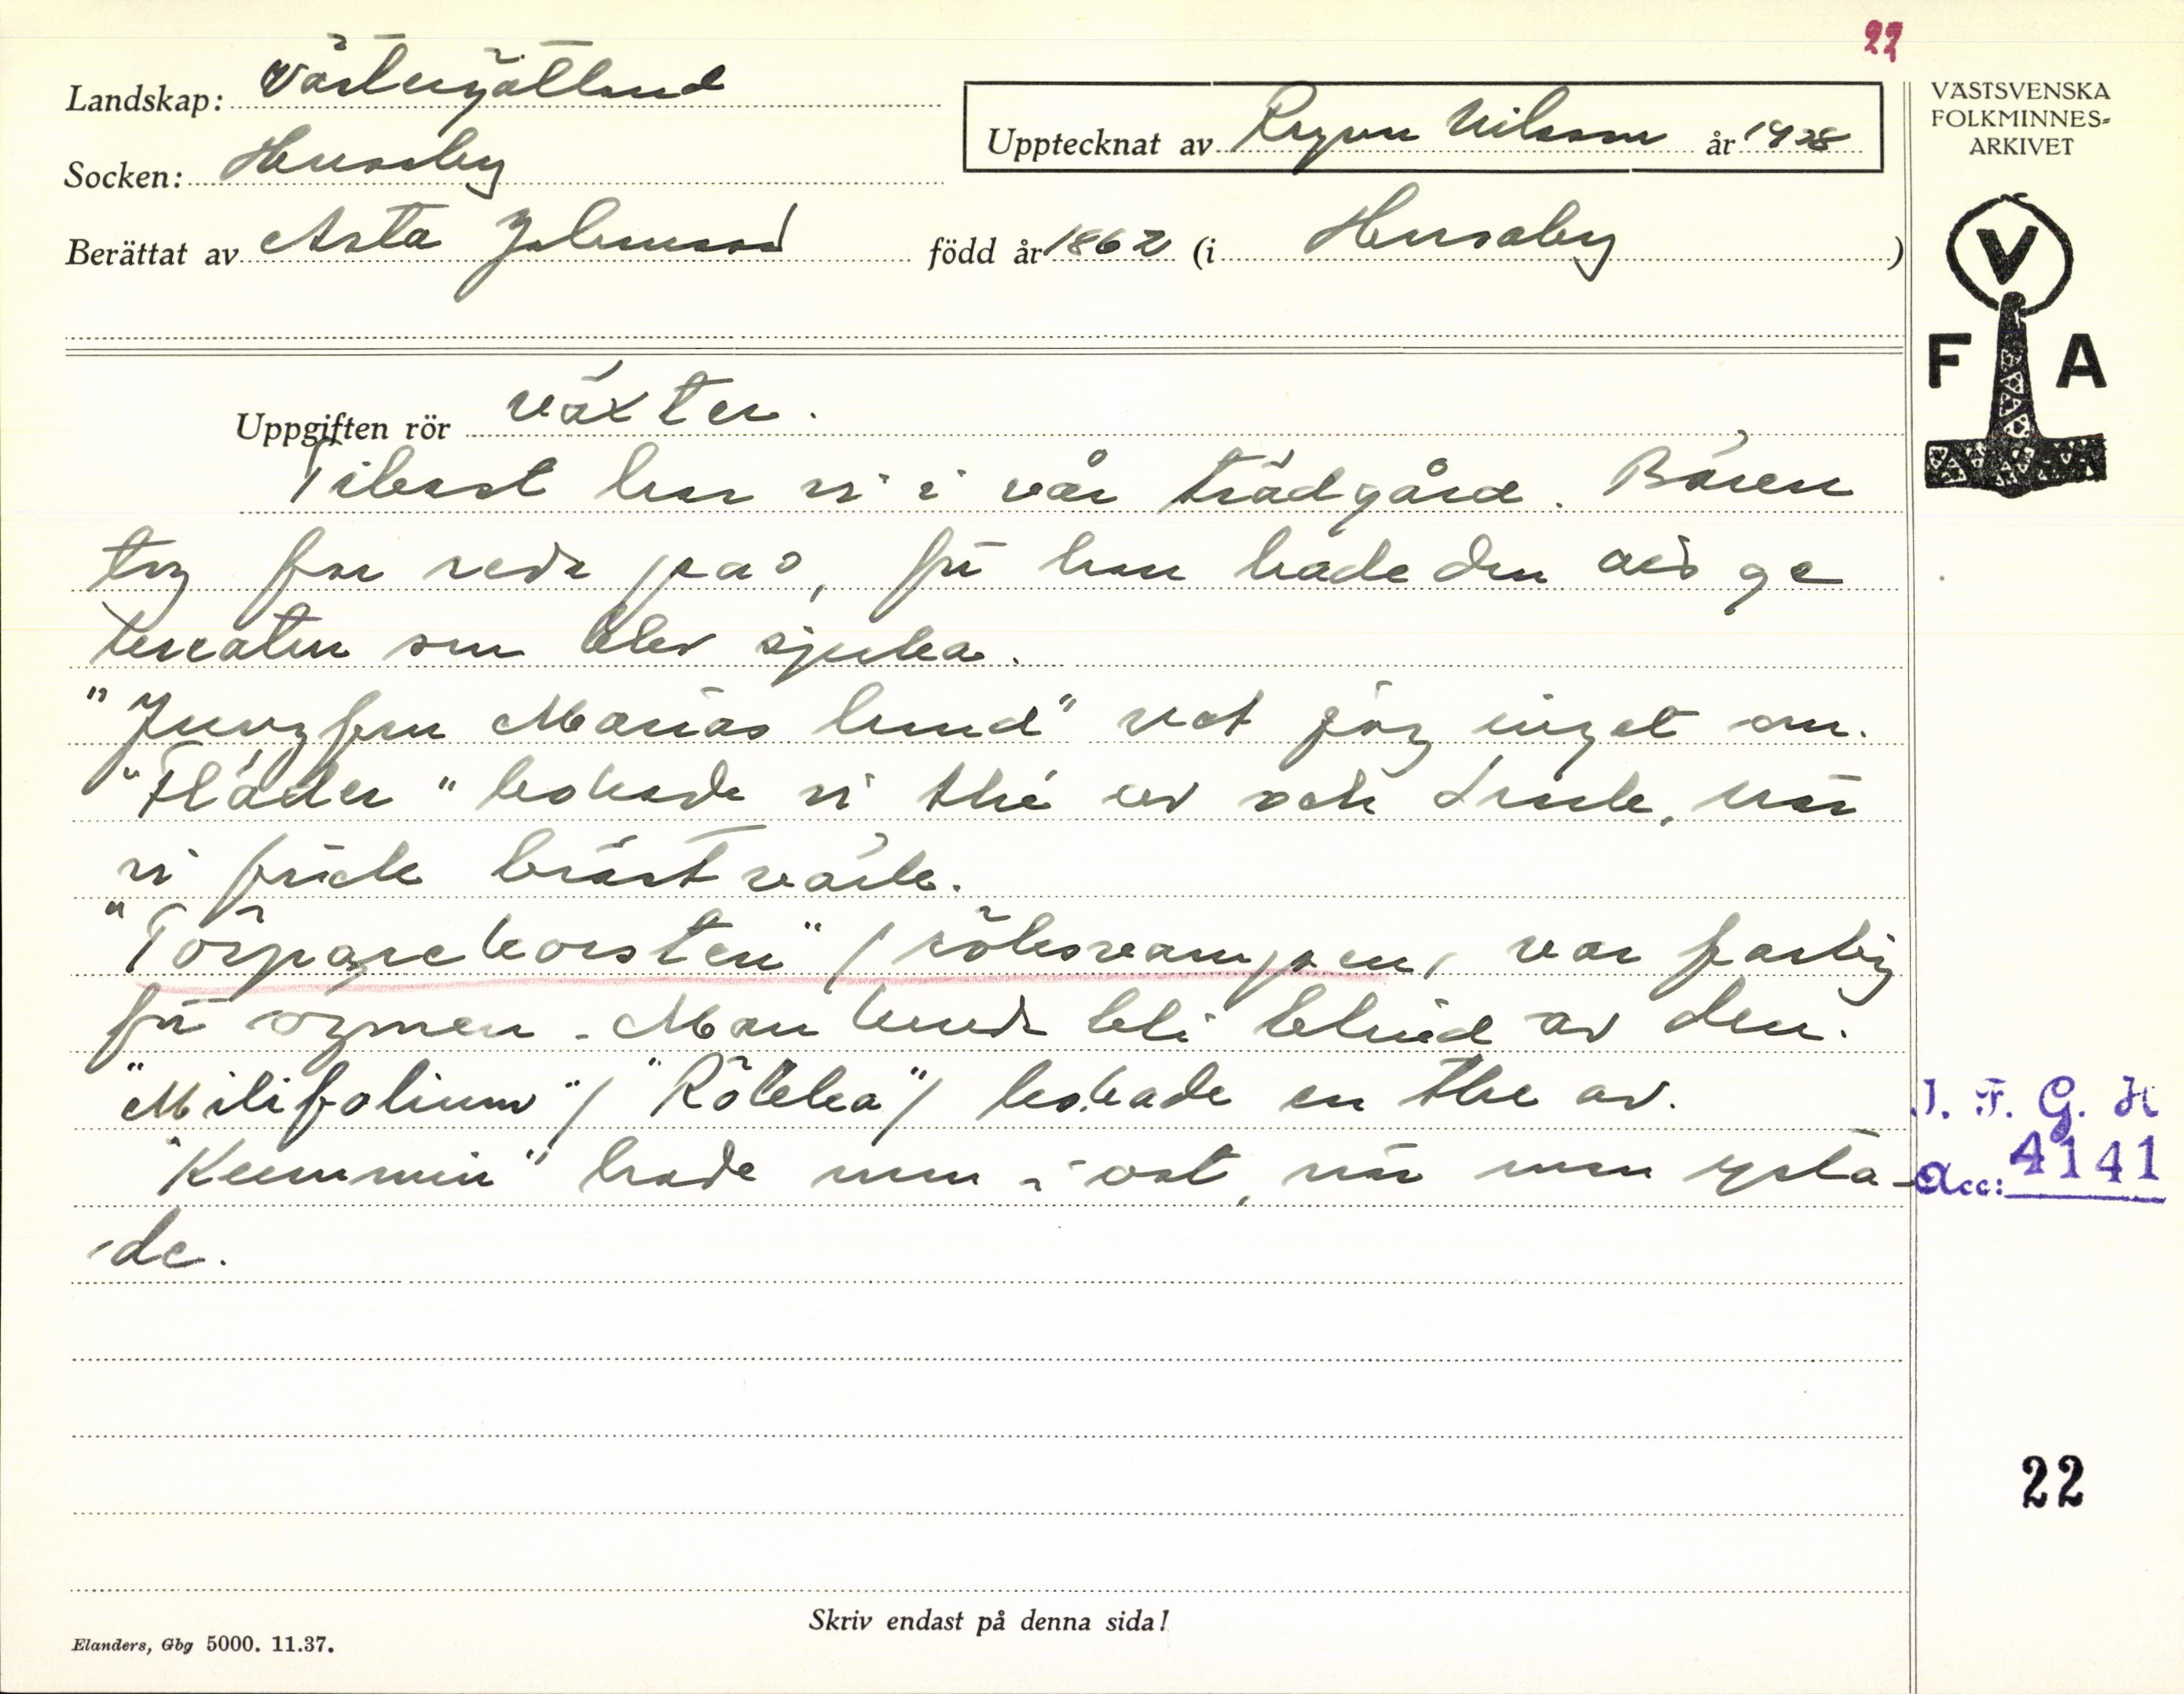 22
Landskap: Västergötland
Socken: Husaby
Upptecknat av Ragnar Nilsson år 1938
Berättat av Asta Johansson född år 1862 (i Husaby)
VÄSTSVENSKA
FOLKMINNES=
ARKIVET
V
F A
Uppgiften rör växter.
Tibast har vi i vår trädgård. Bären
tog far reda på, för han hade den att ge
kreatur som blev sjuka.
"Jungfru Marias hand" vet jag inget om.
"Fläder" kokade vi thé av och drack, när
vi fick bröstvärk.
"Torparekorsten" / röksvampen, var farlig
för ögonen. Man kunde bli blind av den.
"Milifolium" / "Röllka" / kokade en the av.
"Kummin" hade man i ost, när man ysta-
de.
I. F. G. H
Acc: 4141
22
Skriv endast på denna sida!
Elanders, Gbg 5000. 11.37.